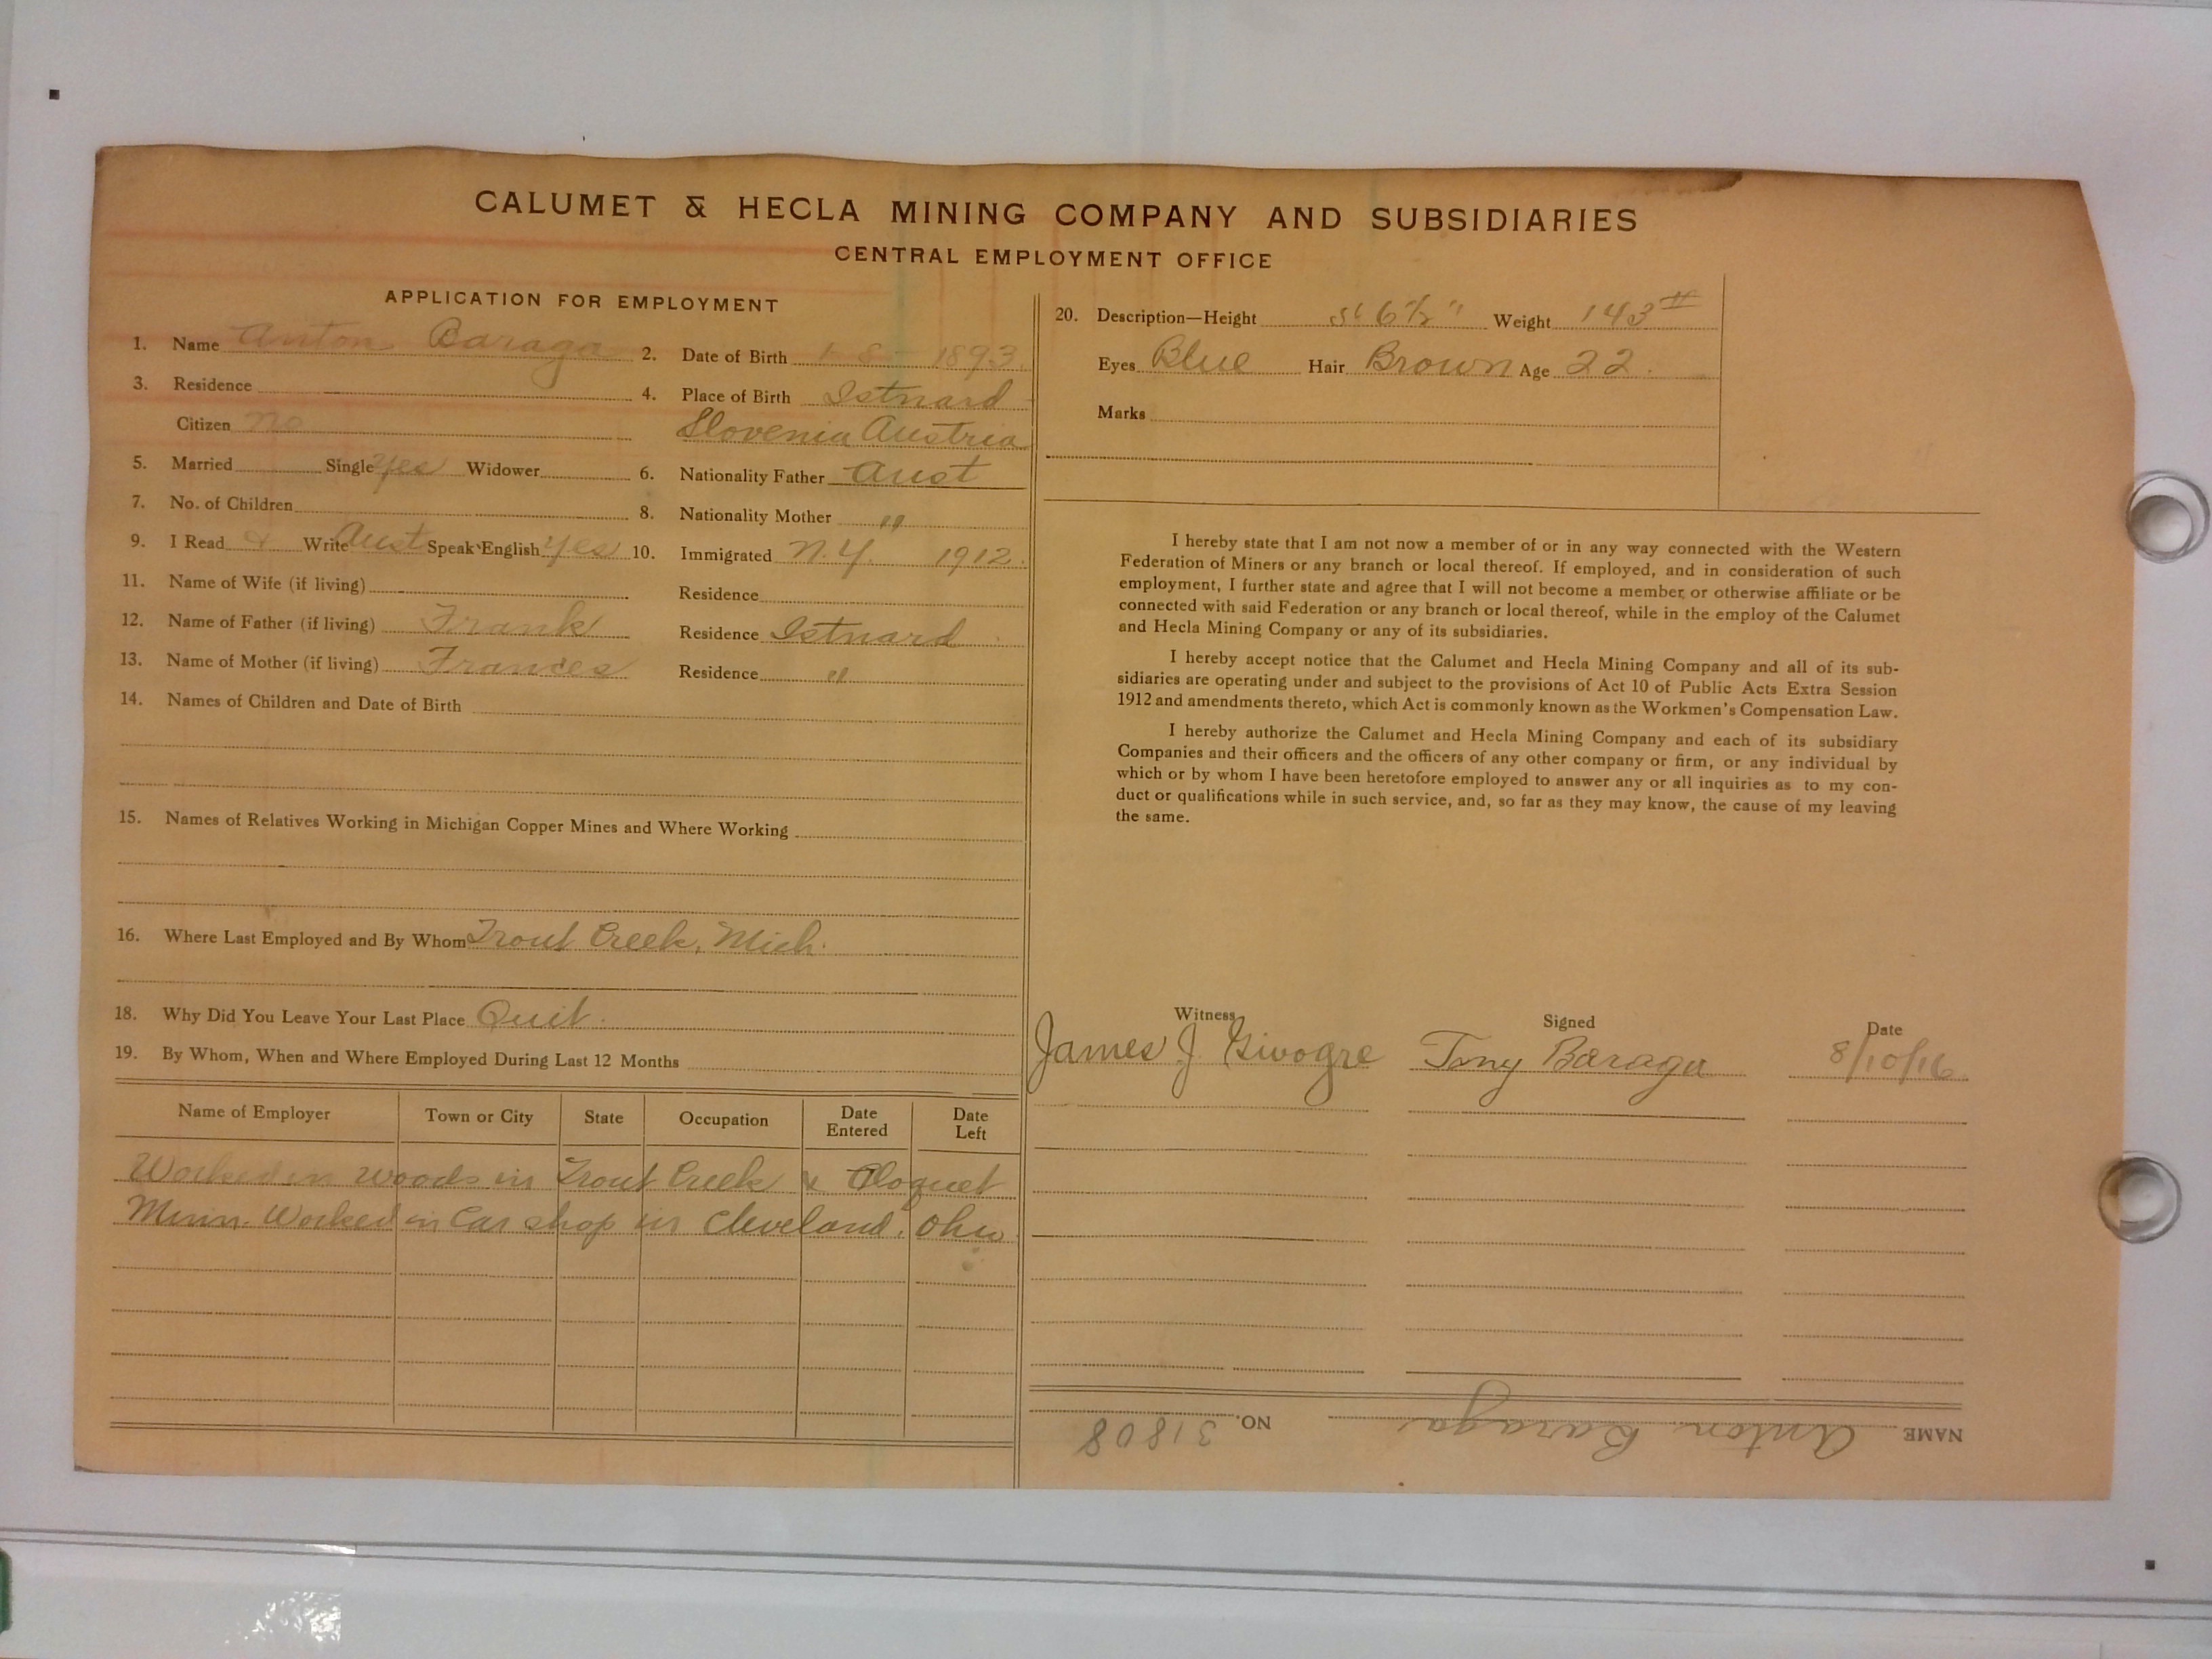 CALUMET & HECLA MINING COMPANY AND SUBSIDIARIES
CENTRAL EMPLOYMENT OFFICE
APPLICATION FOR EMPLOYMENT
1. Name Anton Baraga 2. Date of Birth 1-8-1893
3. Residence 4. Place of Birth Istnard
Citizen no Slovenia Austria
5. Married Single yes Widower 6. Nationality Father Aust
7. No. of Children 8. Nationality Mother "
9. I Read & Write Aust Speak English yes 10. Immigrated N.Y. 1912.
11. Name of Wife (if living) Residence
12. Name of Father (if living) Frank Residence Istnard
13. Name of Mother (if living) Frances Residence "
14. Names of Children and Date of Birth
15. Names of Relatives Working in Michigan Copper Mines and Where Working
16. Where Last Employed and By Whom Trout Creek, Mich.
18. Why Did You Leave Your Last Place Quit.
19. By Whom, When and Where Employed During Last 12 Months
Name of Employer Town or City State Occupation Date Entered Date Left
Worked in woods in Trout Creek & Cloquet
Minn. Worked in Car shop in Cleveland, Ohio
20. Description—Height 5' 6 1/2" Weight 143#
Eyes Blue Hair Brown Age 22.
Marks
I hereby state that I am not now a member of or in any way connected with the Western
Federation of Miners or any branch or local thereof. If employed, and in consideration of such
employment, I further state and agree that I will not become a member or otherwise affiliate or be
connected with said Federation or any branch or local thereof, while in the employ of the Calumet
and Hecla Mining Company or any of its subsidiaries.
I hereby accept notice that the Calumet and Hecla Mining Company and all of its sub-
sidiaries are operating under and subject to the provisions of Act 10 of Public Acts Extra Session
1912 and amendments thereto, which Act is commonly known as the Workmen's Compensation Law.
I hereby authorize the Calumet and Hecla Mining Company and each of its subsidiary
Companies and their officers and the officers of any other company or firm, or any individual by
which or by whom I have been heretofore employed to answer any or all inquiries as to my con-
duct or qualifications while in such service, and, so far as they may know, the cause of my leaving
the same.
Witness Signed Date
James J. Tony Baraga 8/10/16
NAME Anton Baraga NO. 31808